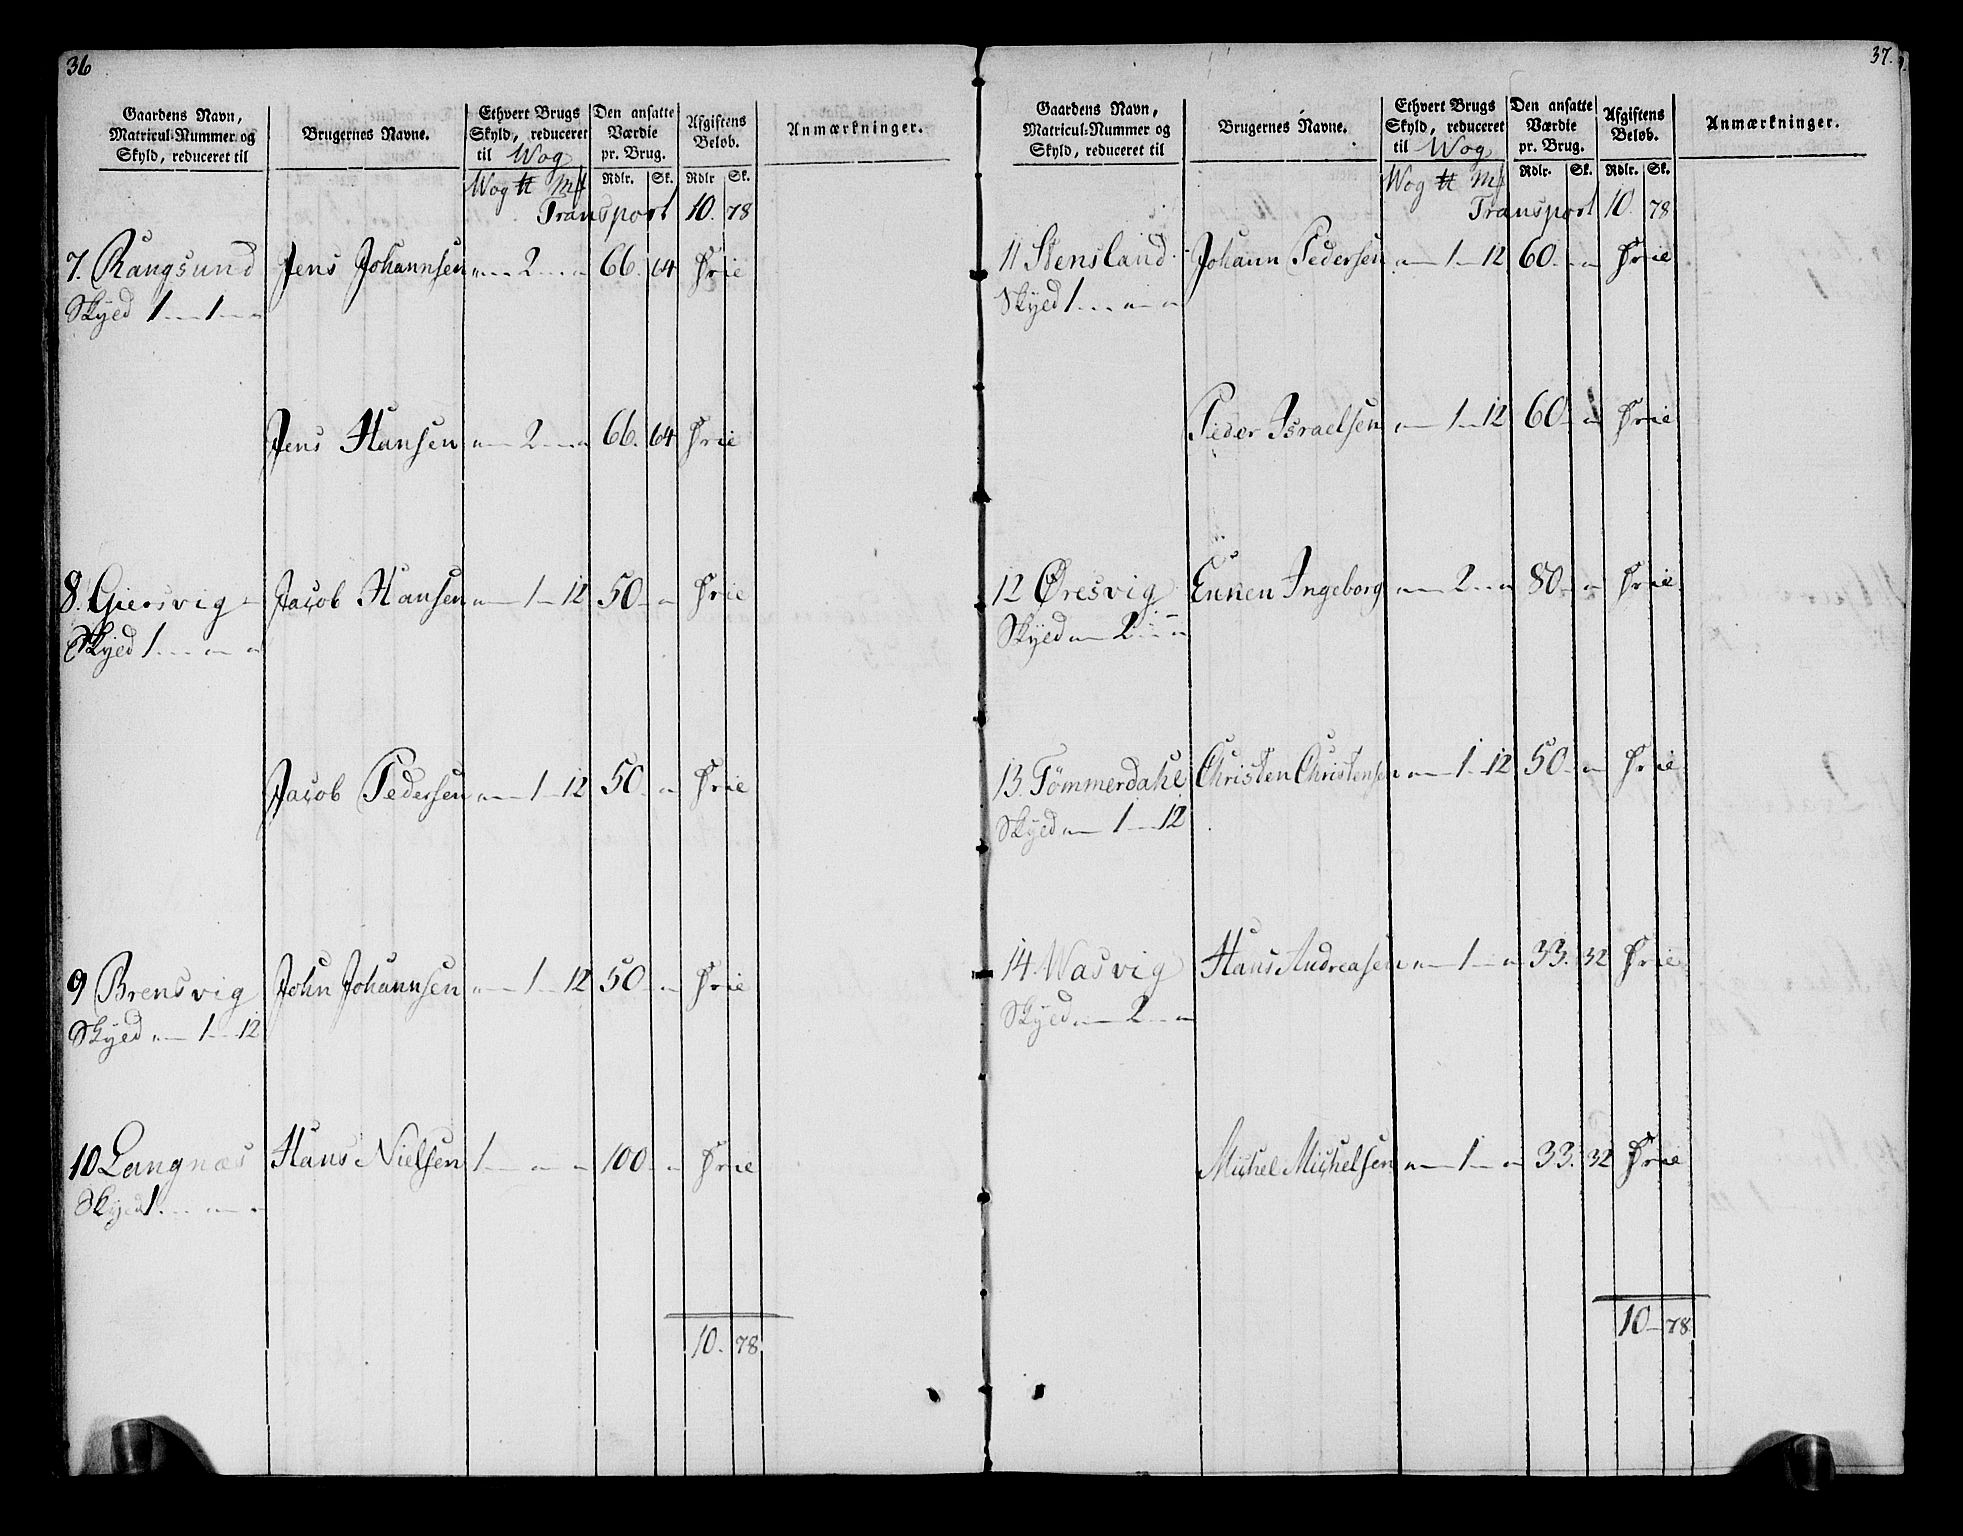 36
Gaardens Navn, Matricul-Nummer og Skyld, reduceret til
Brugernes Navne.
Ethvert Brugs Skyld, reduceret til Wog
Den ansatte Værdie pr. Brug.
Afgiftens Beløb.
Anmærkninger.
Wog ℔ Mk Rdlr. Sk. Rdlr Sk.
Transport 10. 78
7. Rangsund Jens Johannsen „ — 2 — „ 66. 64 Frie
Skyed 1 — 1 — „
Jens Hansen „ — 2 — „ 66. 64 Frie
8. Giersvig Jacob Hansen „ — 1 — 12 50 — „ Frie
Skyed 1 — „ — „
Jacob Pedersen „ — 1 — 12 50 — „ Frie
9 Brensvig John Johannsen „ — 1 — 12 50 — „ Frie
Skyed „ — 1 — 12
10 Langnæs Hans Nielsen 1 — „ — „ 100 — „ Frie
Skyed 1 — „ — „
10. 78
37.
Gaardens Navn, Matricul-Nummer og Skyld, reduceret til
Brugernes Navne.
Ethvert Brugs Skyld, reduceret til Wog
Den ansatte Værdie pr. Brug.
Afgiftens Beløb.
Anmærkninger.
Wog ℔ Mk Rdlr. Sk. Rdlr. Sk.
Transport 10. 78
11 Stensland Johann Pedersen „ — 1 — 12 60 — „ Frie
Skyed 1 — „ — „
Peder Israelsen „ — 1 — 12 60 — „ Frie
12 Øresvig Enken Ingeborg „ — 2 — „ 80 — „ Frie
Skyed „ — 2 — „
13. Tømmerdahl Christen Christensen „ — 1 — 12 50 — „ Frie
Skyed „ — 1 — 12
14. Wasvig Hans Andreasen „ — 1 — „ 33. 32 Frie
Skyed „ — 2 — „
Michel Michelsen „ — 1 — „ 33. 32 Frie
10 — 78